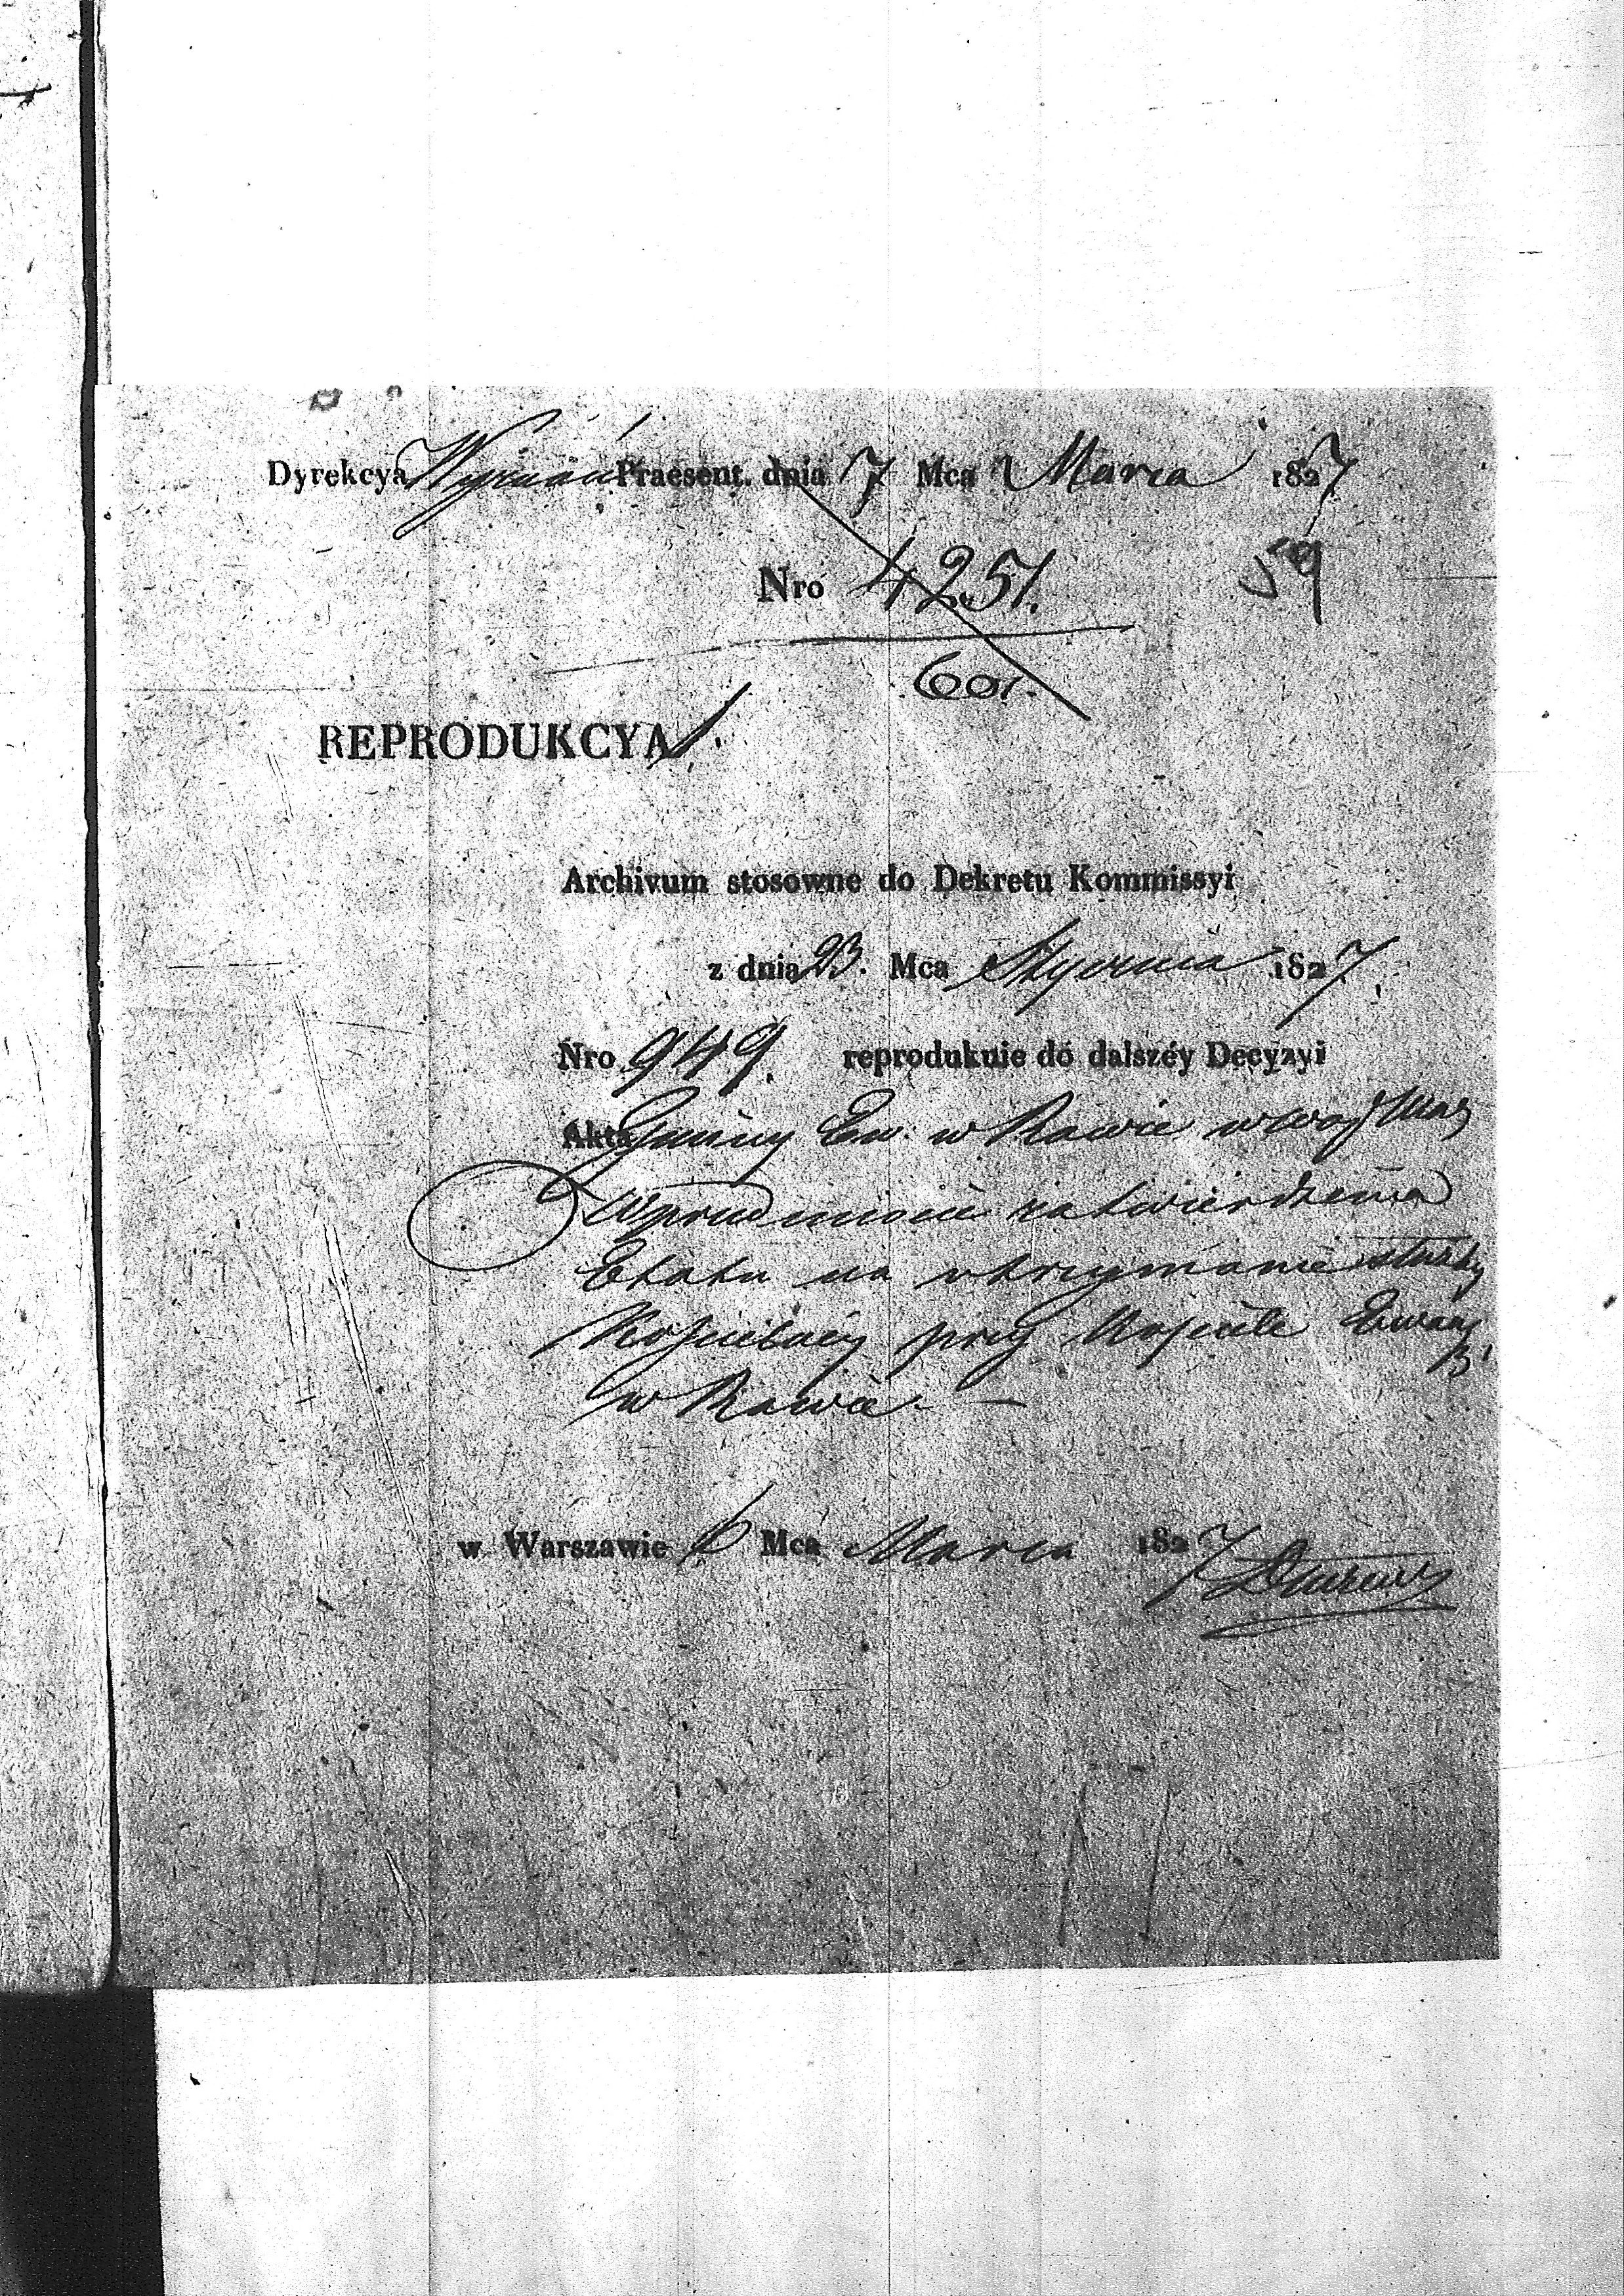 Dyrekcya Wyznań Praesent. dnia 7 Mca Marca 1827
59
Nro 4251.
601.
REPRODUKCYA
Archivum stosowne do Dekretu Kommissyi
z dnia 23. Mca Stycznia 1827.
Nro 949. reprodukuie do dalszéy Decyzyi
Akta Gminy Ew. w Rawie w Woj Maz
W przedmiocie zatwierdzenia
Etatu na utrzymanie służby
Kościelnéy przy Kościele Ewang
w Rawie. —
w Warszawie 6 Mca Marca 1827